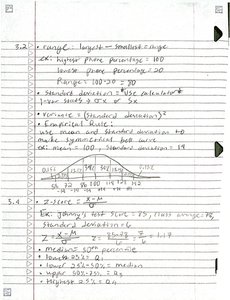 3.2 • range = largest - smallest range
ex: highest phone percentage = 100
lowest phone percentage = 20
Range = 100-20 = 80
• Standard deviation = *Use calculator*
1-var stats → σx or Sx
• variance = (Standard deviation)²
• Empirical Rule:
use mean and standard deviation to
make symmetrical bell curve
ex: mean = 100, Standard deviation =
34%
100
3.4 • Z-score = x-μ
Ex: Johnny's test score = 75, class average =
Standard deviation = 6
Z = x-μ/σ
• median = 50th percentile
• lowest 25% = Q1
• lower 25%-50% = median
• upper 50%-75% = Q3
• Highest 25% =